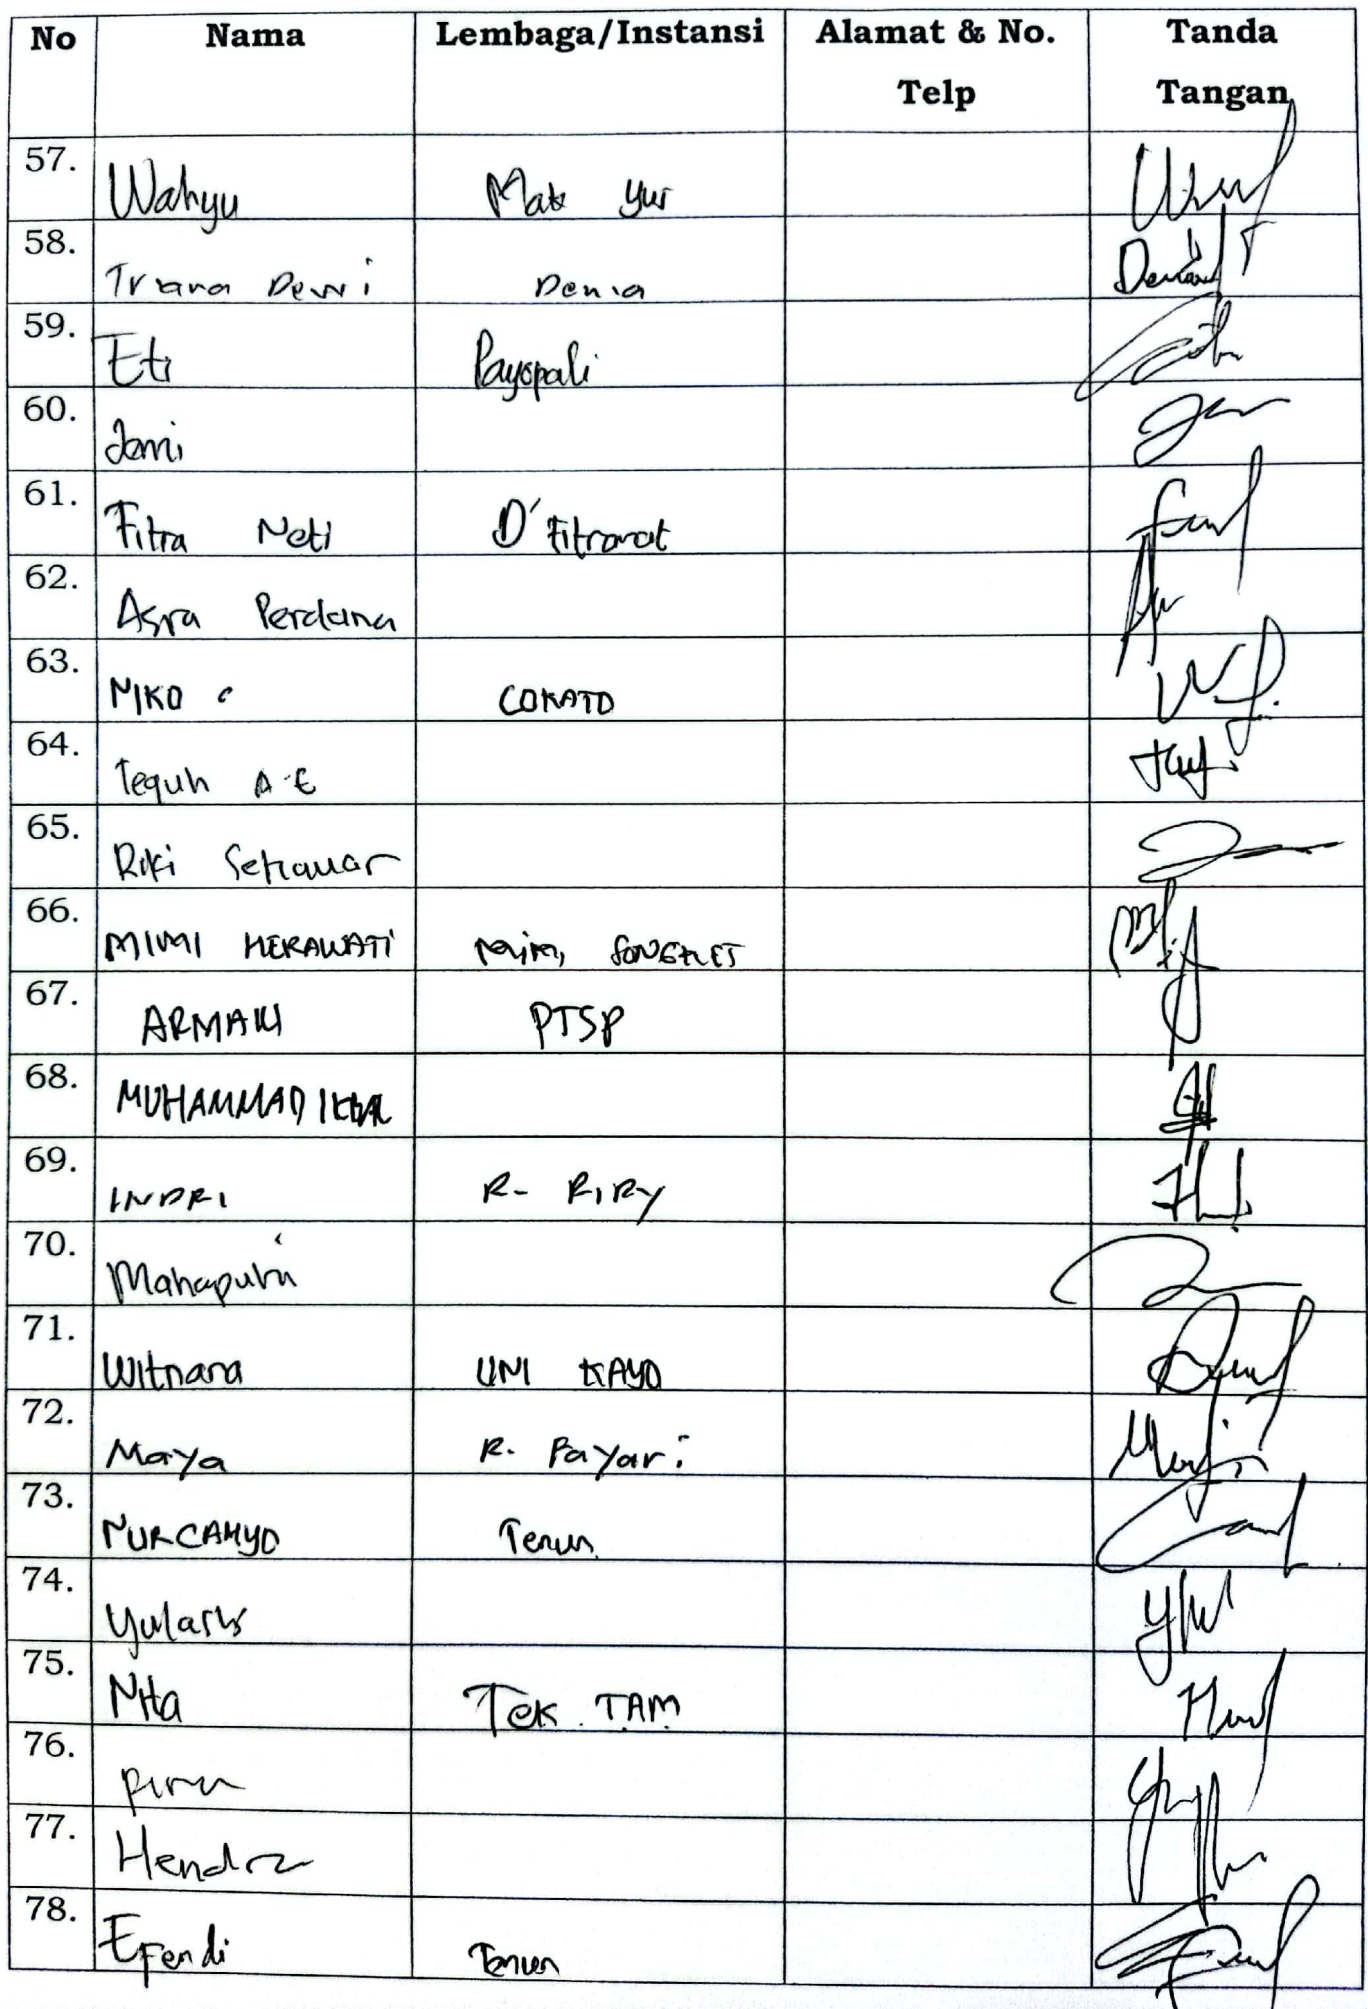 No Nama Lembaga/Instansi Alamat & No. Telp Tanda Tangan
57. Wahyu Mak Yur
58. Triana Dewi Denia
59. Eti Payopali
60. Jami
61. Fitra Neti D'Fitramat
62. Asra Perdana
63. NIKO COKATO
64. Teguh A.E
65. Riki Setiawar
66. MIMI HERAWATI Mimi SONGKET
67. ARMAIKI PTSP
68. MUHAMMAD IKBAL
69. INDRI R- RIRY
70. Mahaputri
71. Witnara UNI KAYO
72. Maya R. Payari
73. NURCAHYO Tenun
74. Yularis
75. Nita Tek TAM
76.
77. Hendra
78. Efendi Tenun